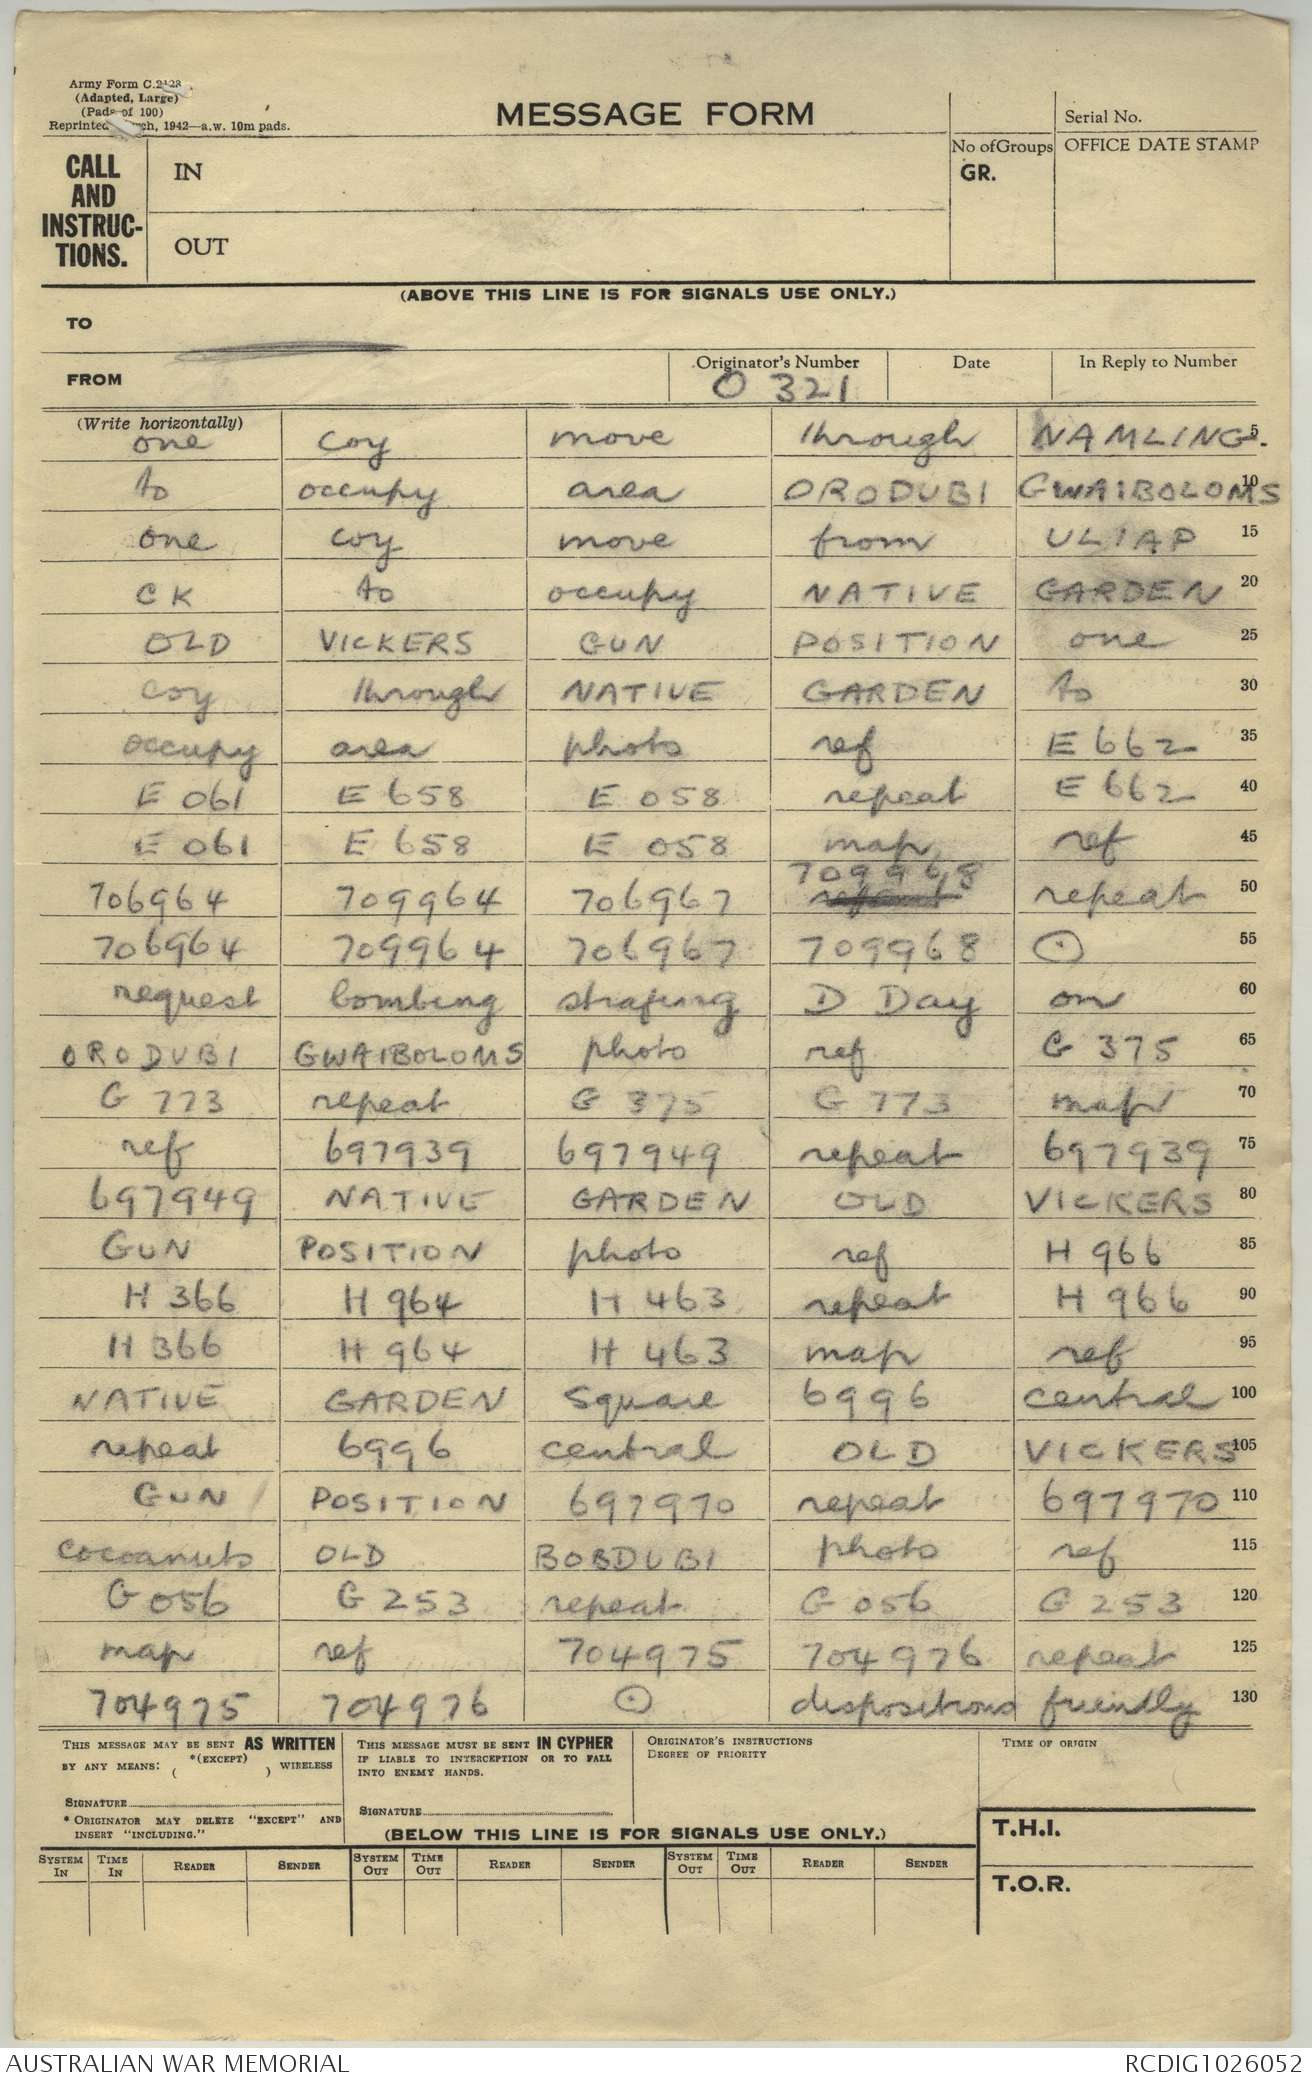 Army Form C.2128
(Adapted, Large)
(Pads of 100)
Reprinted March, 1942—a.w. 10m pads.
MESSAGE FORM
Serial No.
CALL AND INSTRUC-TIONS.
IN
OUT
No of Groups
GR.
OFFICE DATE STAMP
(ABOVE THIS LINE IS FOR SIGNALS USE ONLY.)
TO
FROM
Originator's Number
O 321
Date
In Reply to Number
(Write horizontally)
one coy move through NAMLING. 5
to occupy area ORODUBI GWAIBOLOMS 10
one coy move from ULIAP 15
CK to occupy NATIVE GARDEN 20
OLD VICKERS GUN POSITION one 25
coy through NATIVE GARDEN to 30
occupy area photo ref E 662 35
E 061 E 658 E 058 repeat E 662 40
E 061 E 658 E 058 map ref 45
706964 709964 706967 709968 repeat 50
706964 709964 706967 709968 ⊙ 55
request bombing strafing D Day on 60
ORODUBI GWAIBOLOMS photo ref G 375 65
G 773 repeat G 375 G 773 map 70
ref 697939 697949 repeat 697939 75
697949 NATIVE GARDEN OLD VICKERS 80
GUN POSITION photo ref H 966 85
H 366 H 964 H 463 repeat H 966 90
H 366 H 964 H 463 map ref 95
NATIVE GARDEN square 6996 central 100
repeat 6996 central OLD VICKERS 105
GUN POSITION 697970 repeat 697970 110
cocoanuts OLD BOBDUBI photo ref 115
G 056 G 253 repeat G 056 G 253 120
map ref 704975 704976 repeat 125
704975 704976 ⊙ dispositions friendly 130
THIS MESSAGE MAY BE SENT AS WRITTEN
BY ANY MEANS: *(EXCEPT) ( ) WIRELESS
SIGNATURE
* ORIGINATOR MAY DELETE "EXCEPT" AND
INSERT "INCLUDING."
THIS MESSAGE MUST BE SENT IN CYPHER
IF LIABLE TO INTERCEPTION OR TO FALL
INTO ENEMY HANDS.
SIGNATURE
ORIGINATOR'S INSTRUCTIONS
DEGREE OF PRIORITY
TIME OF ORIGIN
(BELOW THIS LINE IS FOR SIGNALS USE ONLY.)
T.H.I.
T.O.R.
SYSTEM IN TIME IN READER SENDER SYSTEM OUT TIME OUT READER SENDER SYSTEM OUT TIME OUT READER SENDER
AUSTRALIAN WAR MEMORIAL
RCDIG1026052